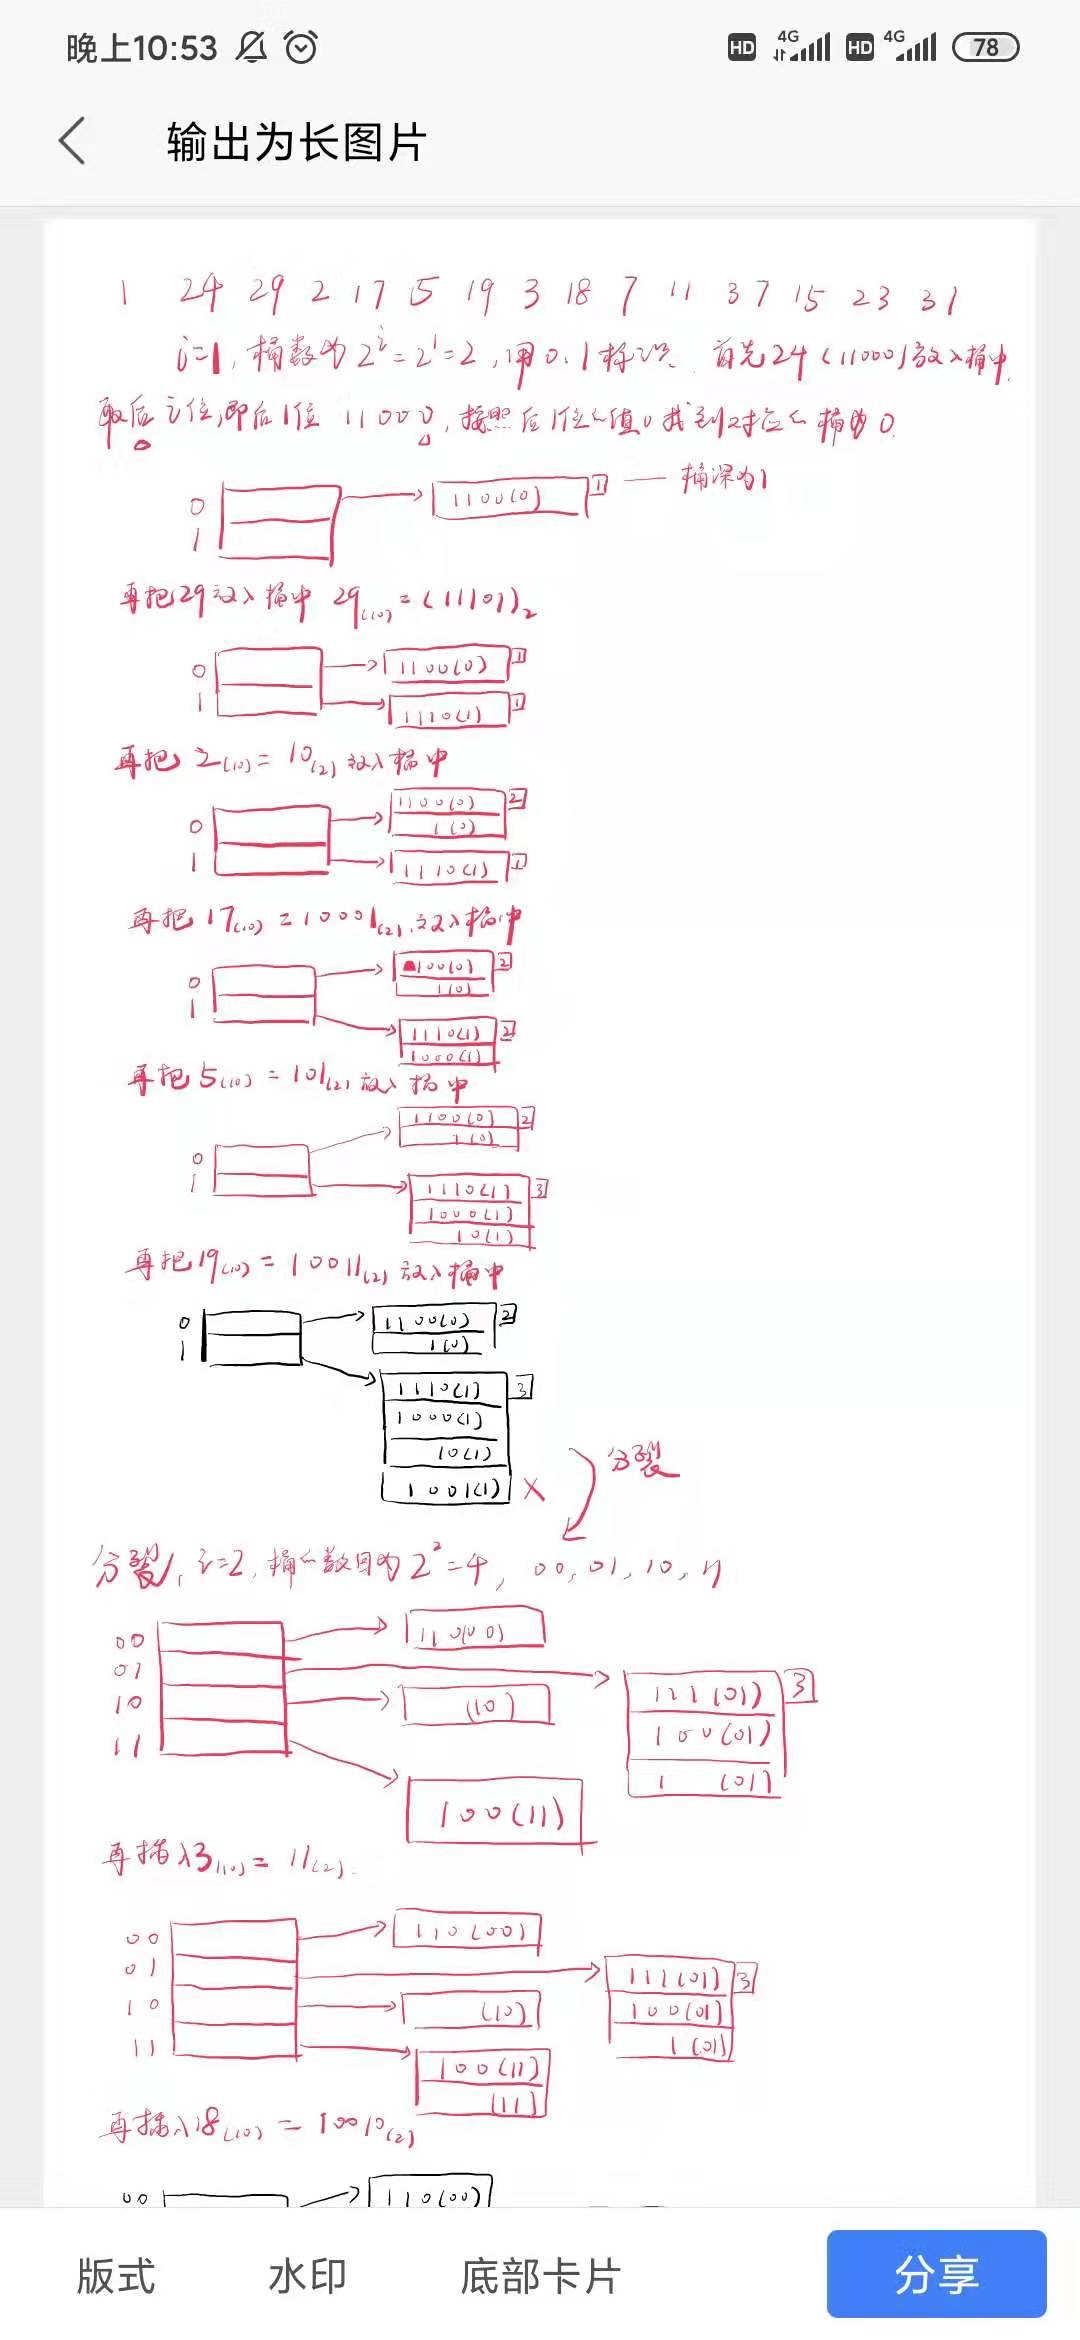 晚上10:53 HD 4G HD 4G 78
输出为长图片
1 24 29 2 17 5 19 3 18 7 11 37 15 23 31
i=1, 桶数为 2^i=2^1=2, 用0.1标识. 首先24 (11000) 放入桶中,
取后i位,即后1位 11000, 按照后1位的值0找到对应的桶为0.
0 1100(0) 1 — 桶深为1
1
再把29放入桶中 29(10)=(11101)2
0 1100(0) 1
1 1110(1) 1
再把 2(10)=10(2) 放入桶中
0 1100(0) 2
1(0)
1 1110(1) 1
再把 17(10)=10001(2) 放入桶中
0 1100(0) 2
1(0)
1 1110(1) 2
1000(1)
再把 5(10)=101(2) 放入桶中
0 1100(0) 2
1(0)
1 1110(1) 3
1000(1)
10(1)
再把19(10)=10011(2) 放入桶中
0 1100(0) 2
1 1(0)
1110(1) 3
1000(1)
10(1)
1001(1) X 分裂
分裂, i=2, 桶的数目为 2^2=4, 00, 01, 10, 11
00 110(00)
01 111(01) 3
100(01)
1 (01)
10 (10)
11 100(11)
再插入3(10)=11(2).
00 110(00)
01 111(01) 3
100(01)
1(01)
10 (10)
11 100(11)
(11)
再插入18(10)=10010(2)
00 110(00)
版式 水印 底部卡片 分享